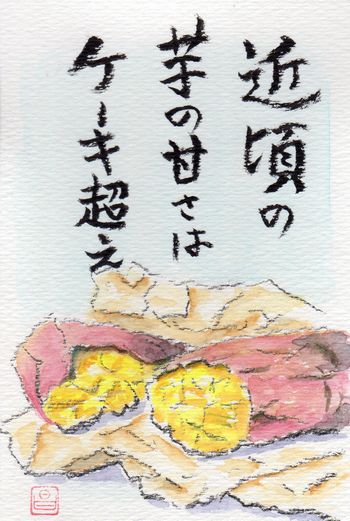 近頃の
芋の甘さは
ケーキ超え